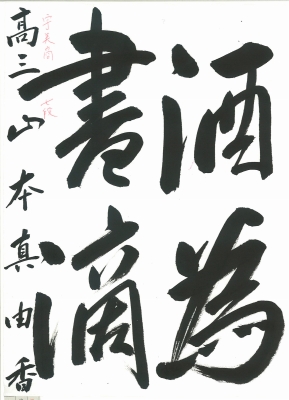 酒為
書滴
高三山本真由香
七段